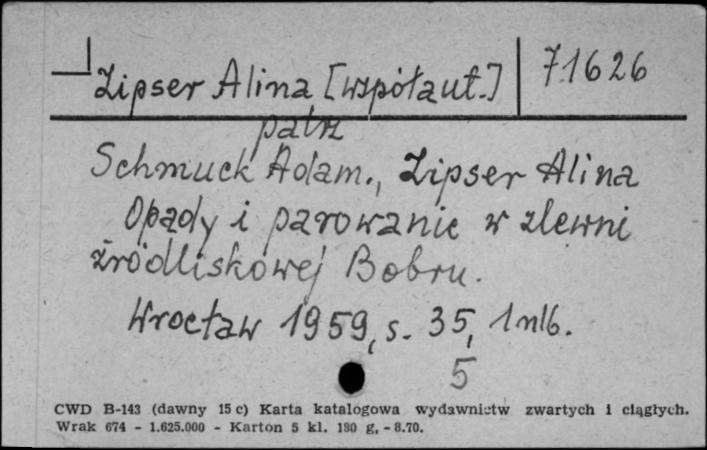 Zipser Alina [współaut.] 71626
patrz
Schmuck Adam., Zipser Alina
Opady i parowanie w zlewni
źródliskowej Bobru.
Wrocław 1959, s. 35, 1 nlb.
5
CWD B-143 (dawny 15 c) Karta katalogowa wydawnictw zwartych i ciągłych.
Wrak 674 - 1.625.000 - Karton 5 kl. 180 g, - 8.70.